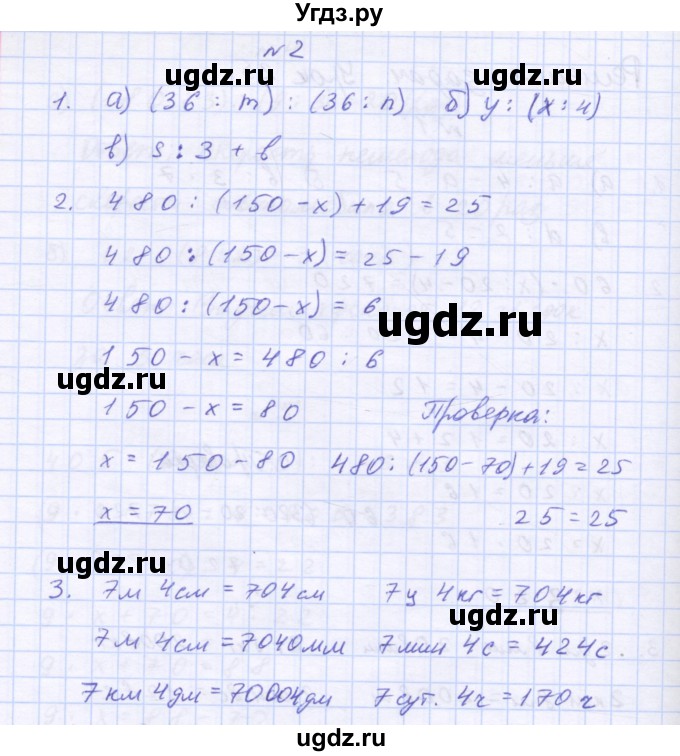 Угдз.ру
№2
ugdz.ru ugdz.ru
1. а) (36 : m) : (36 : n) б) y : (x : 4)
в) s : 3 + b
ugdz.ru
2. 480 : (150 - x) + 19 = 25
480 : (150 - x) = 25 - 19
480 : (150 - x) = 6
ugdz.ru
150 - x = 480 : 6
ugdz.ru
150 - x = 80 Проверка:
x = 150 - 80 480 : (150 - 70) + 19 = 25
x = 70 25 = 25
ugdz.ru
3. 7м 4см = 704см 7ц 4кг = 704кг
ugdz.ru
7м 4см = 7040мм 7мин 4с = 424с.
7км 4дм = 70004дм 7сут. 4ч = 170ч
ugdz.ru ugdz.ru
Угдз.ру